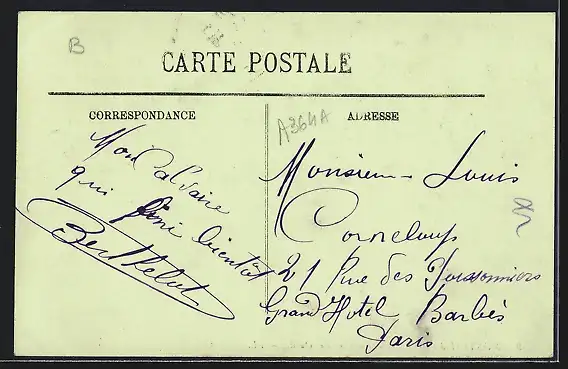 B
CARTE POSTALE
CORRESPONDANCE
A364A
ADRESSE
Mon Calvaire
qui fini bientôt
Berthelot
Monsieur Louis
Corneloup
21 Rue des Poissonniers
Grand Hotel Barbès
Paris